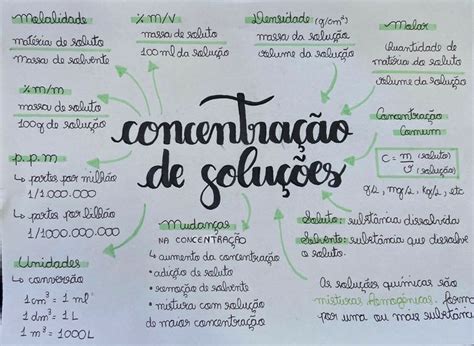 Molalidade
matéria de soluto
massa de solvente
% m/m
massa de soluto
100g de solução
p.p.m
↳ partes por milhão
1/1.000.000
↳ partes por bilhão
1/1000.000.000
Unidades
↳ conversão
1cm³ = 1 ml
1 dm³ = 1 L
1 m³ = 1000L
% m/V
massa de soluto
100 ml da solução
Densidade (g/cm³)
massa da solução
volume da solução
Molar
Quantidade de
matéria do soluto
volume da solução
Concentração
Comum
C = m (soluto)
v (solução)
g/L, mg/L, kg/L, etc
concentração
de soluções
Mudanças
NA CONCENTRAÇÃO
↳ aumento da concentração
• adição de soluto
• remoção de solvente
• mistura com solução
de maior concentração
Soluto: substância dissolvida
Solvente: substância que dissolve
o soluto.
As soluções químicas são
misturas homogêneas, forma
por uma ou mais substância